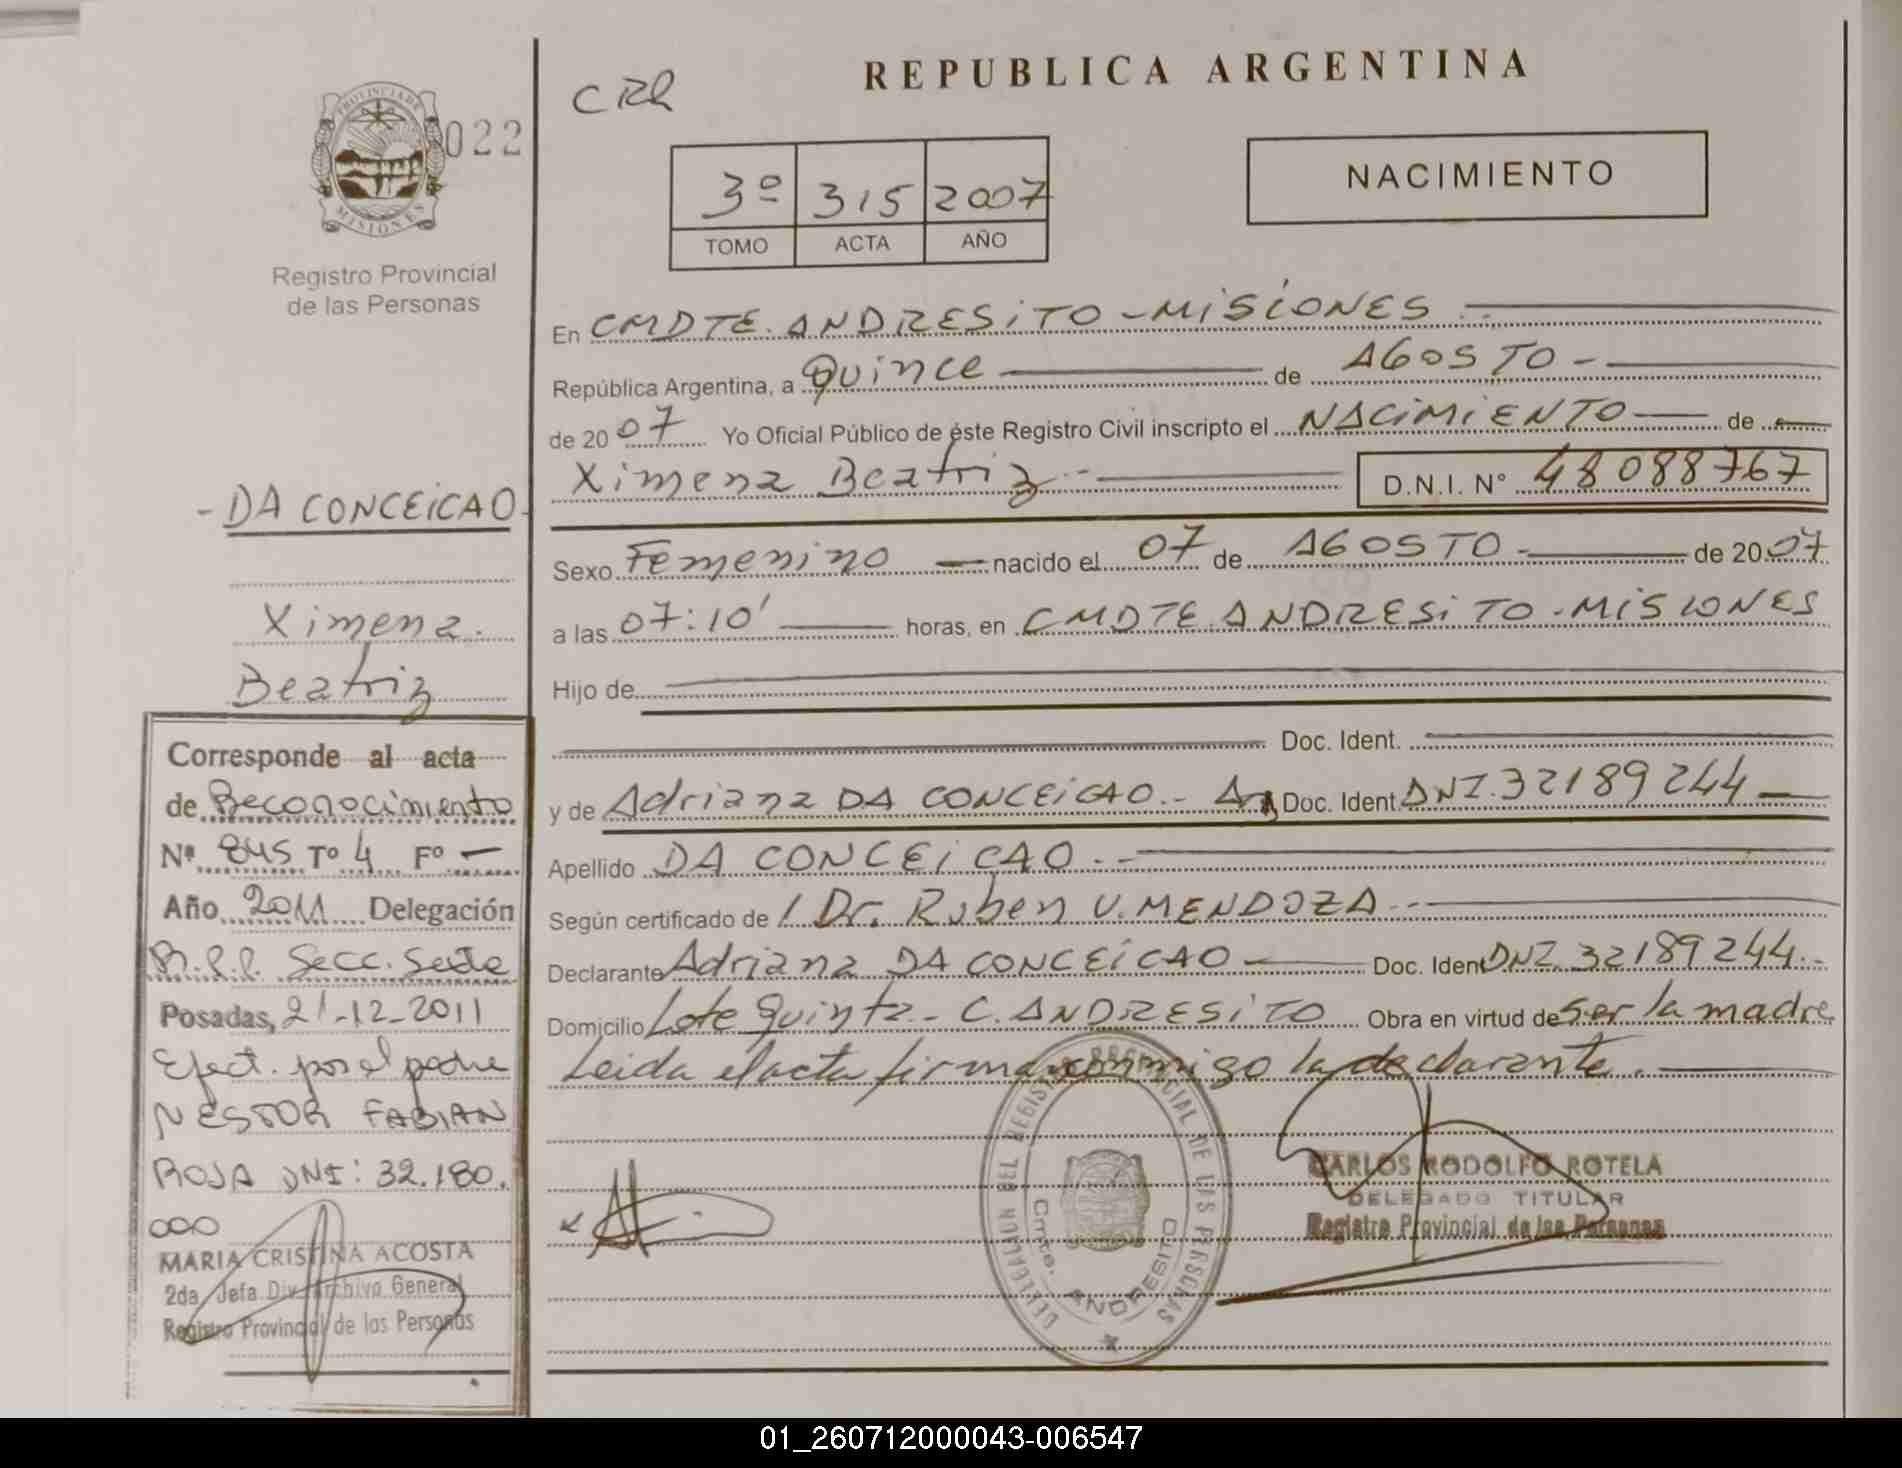 REPUBLICA ARGENTINA
CRR
022
PROVINCIA DE
MISIONES
Registro Provincial
de las Personas
3º 315 2007
TOMO ACTA AÑO
NACIMIENTO
En CMDTE. ANDRESITO - MISIONES
República Argentina, a Quince de AGOSTO -
de 2007 Yo Oficial Público de éste Registro Civil inscripto el NACIMIENTO de
Ximena Beatriz D.N.I. N° 48088767
Sexo Femenino nacido el 07 de AGOSTO - de 2007
a las 07:10' horas, en CMDTE. ANDRESITO - MISIONES
Hijo de
Doc. Ident.
y de Adriana DA CONCEICAO.- Arg Doc. Ident. DNI. 32189244
Apellido DA CONCEICAO.-
Según certificado de Dr. Ruben V. MENDOZA
Declarante Adriana DA CONCEICAO Doc. Ident DNI. 32189244.-
Domicilio Lote Quinta - C. ANDRESITO Obra en virtud de ser la madre
Leida el acta firma conmigo la declarante.
DELEGACION DEL REGISTRO PROVINCIAL DE LAS PERSONAS
Cmte. ANDRESITO
CARLOS RODOLFO ROTELA
DELEGADO TITULAR
Registro Provincial de las Personas
- DA CONCEICAO -
Ximena
Beatriz
Corresponde al acta
de Reconocimiento
Nº 845 Tº 4 Fº —
Año 2011 Delegación
R.P.P. Secc. Sede
Posadas, 21-12-2011
Efect. por el padre
NESTOR FABIAN
ROJA DNI: 32.180.
000
MARIA CRISTINA ACOSTA
2da Jefa Div. Archivo General
Registro Provincial de las Personas
01_260712000043-006547